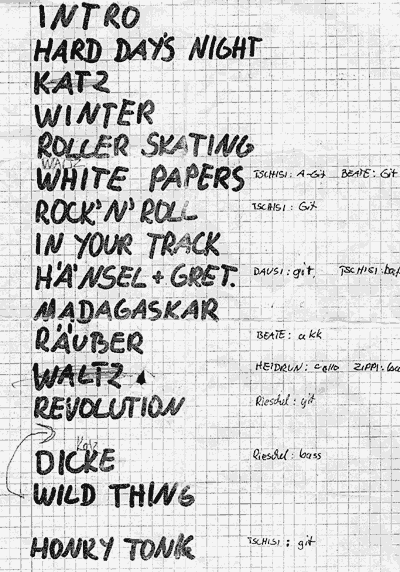 INTRO
HARD DAY'S NIGHT
KATZ
WINTER
ROLLER SKATING
WALTZ
WHITE PAPERS TSCHISI: A-Git BEATE: Git
ROCK'N'ROLL TSCHISI: Git
IN YOUR TRACK
HÄNSEL + GRET. DAUSI: git, TSCHISI: bass
MADAGASKAR
RÄUBER BEATE: akk
WALTZ HEIDRUN: cello ZIPPI:
REVOLUTION Rieschel: git
Katz
DICKE Rieschel: bass
WILD THING
HONKY TONK TSCHISI: git